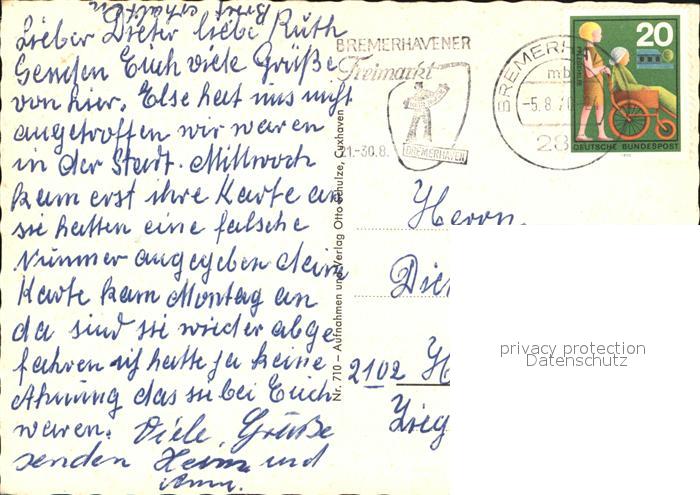 Brief erhalten
Lieber Dieter liebe Ruth
Senden Euch viele Grüße
von hier. Else hat uns nicht
angetroffen wir waren
in der Stadt. Mittwoch
kam erst ihre Karte an
sie hatten eine falsche
Nummer angegeben deine
Karte kam Montag an
da sind sie wieder abge
fahren ich hatte ja keine
Ahnung das sie bei Euch
waren. Viele Grüße
senden und
BREMERHAVENER
Freimarkt
21.-30.8.
BREMERHAVEN
BREMERH
mb
-5.8.70
28
20
DEUTSCHE BUNDESPOST
Nr. 710 – Aufnahmen und Verlag Otto Schulze, Cuxhaven
Herrn
Die
2102 H
Zieg
privacy protection
Datenschutz